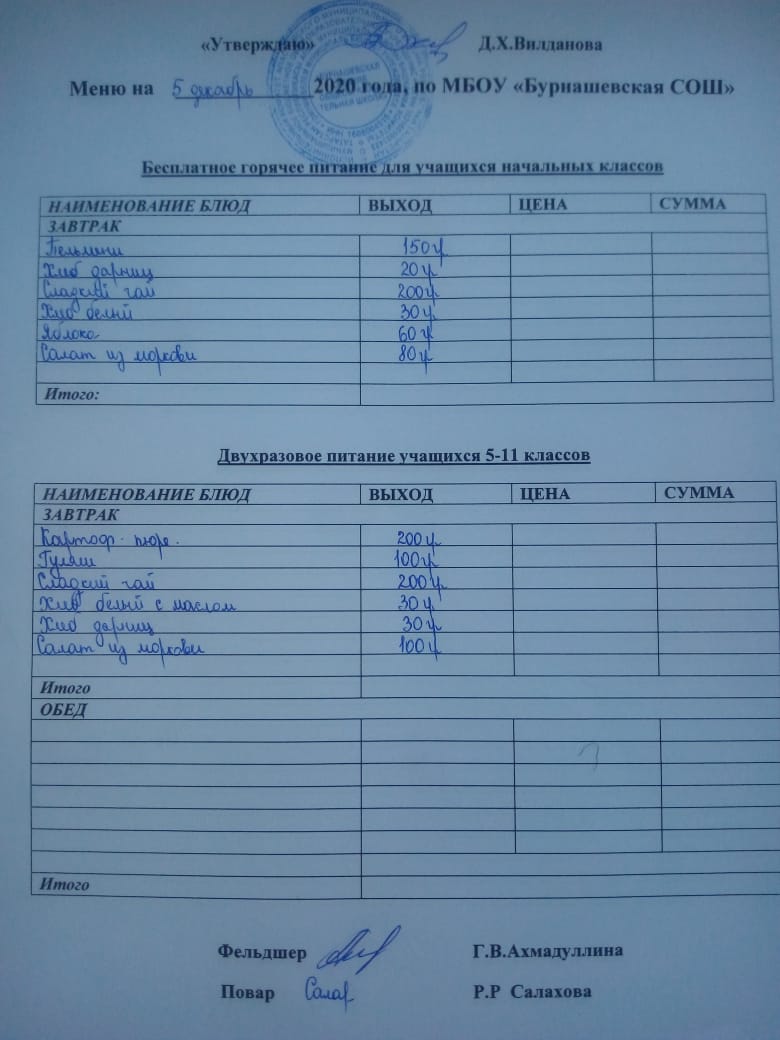 «Утверждаю» Д.Х.Вилданова
Меню на 5 декабрь 2020 года, по МБОУ «Бурнашевская СОШ»
Бесплатное горячее питание для учащихся начальных классов
НАИМЕНОВАНИЕ БЛЮД ВЫХОД ЦЕНА СУММА
ЗАВТРАК
Пельмени 150 г
Хлеб дарниц 20 г
Сладкий чай 200 г
Хлеб белый 30 г
Яблоко 60 г
Салат из моркови 80 г
Итого:
Двухразовое питание учащихся 5-11 классов
НАИМЕНОВАНИЕ БЛЮД ВЫХОД ЦЕНА СУММА
ЗАВТРАК
Картоф. пюре. 200 г
Гуляш 100 г
Сладкий чай 200 г
Хлеб белый с маслом 30 г
Хлеб дарниц 30 г
Салат из моркови 100 г
Итого
ОБЕД
Итого
Фельдшер Г.В.Ахмадуллина
Повар Салах Р.Р Салахова